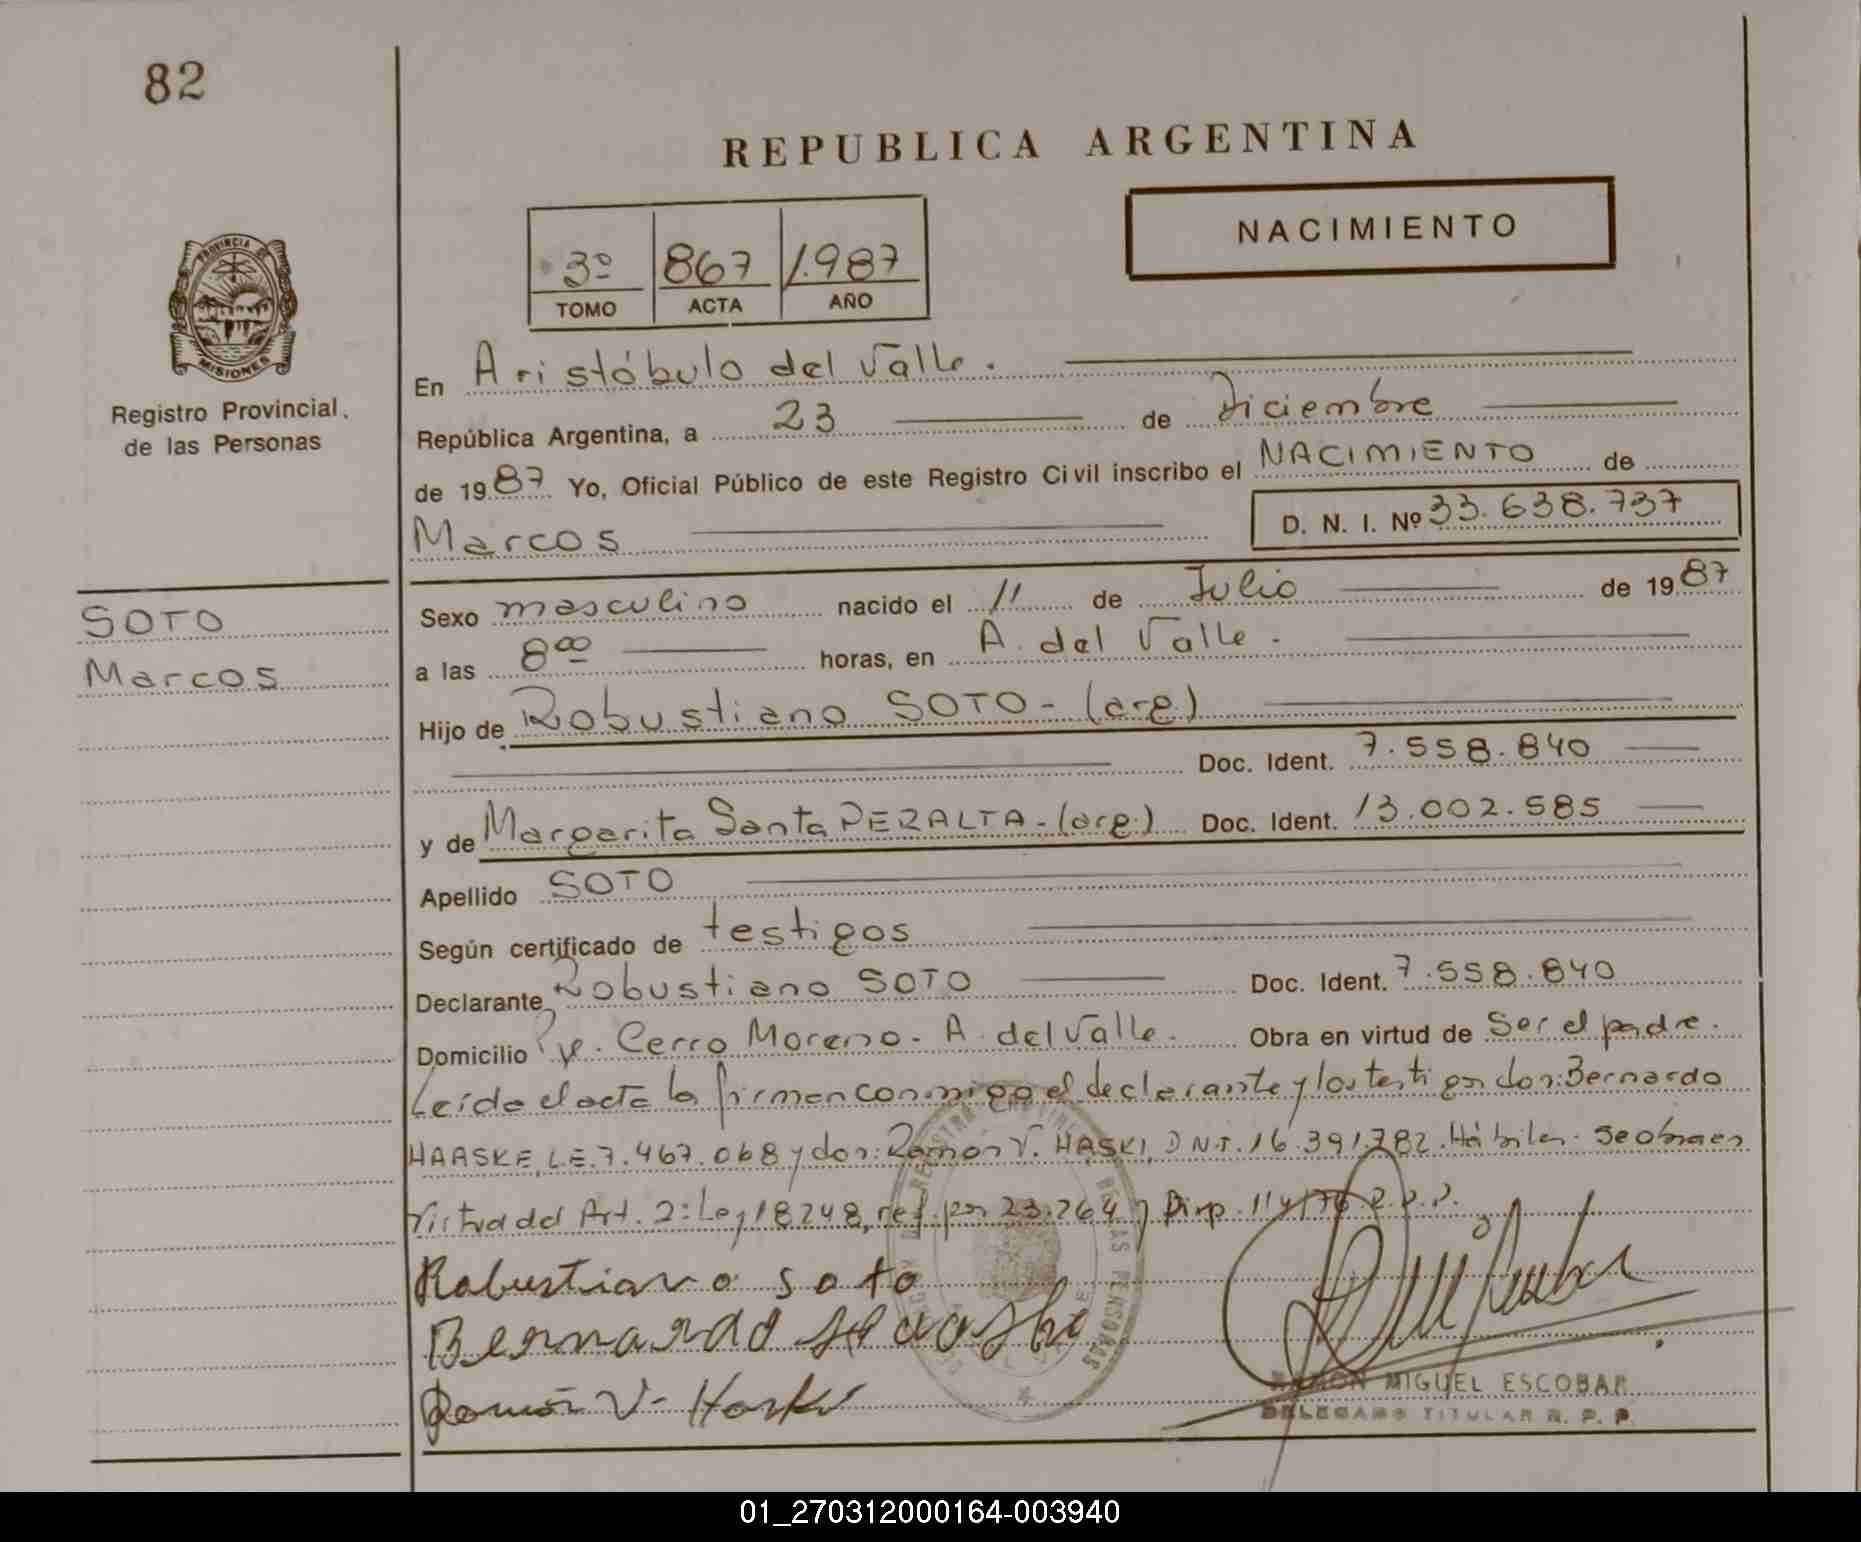 82
REPUBLICA ARGENTINA
NACIMIENTO
3º 867 1.987
TOMO ACTA AÑO
PROVINCIA DE
MISIONES
Registro Provincial.
de las Personas
En Aristóbulo del Valle.
República Argentina, a 23 de Diciembre
de 1987 Yo, Oficial Público de este Registro Civil inscribo el NACIMIENTO de
Marcos D. N. I. Nº 33.638.737
SOTO
Marcos
Sexo masculino nacido el 11 de Julio de 1987
a las 8 00 horas, en A. del Valle.
Hijo de Robustiano SOTO - (arg.)
Doc. Ident. 7.558.840
y de Margarita Santa PERALTA - (arg.) Doc. Ident. 13.002.585
Apellido SOTO
Según certificado de testigos
Declarante Robustiano SOTO Doc. Ident. 7.558.840
Domicilio Cerro Moreno - A. del Valle. Obra en virtud de Ser el padre.
Leída el acta la firman conmigo el declarante y los testigos don: Bernardo
HAASKE, L.E. 7.467.068 y don: Ramón V. HASKI, D.N.I. 16.391.782. Hábiles. Se obra en
virtud del Art. 2: Ley 18248, ref. por 23.264 y Disp. 114/76 R.P.P.
Robustiano soto
Bernardo
Ramón V. Haski
RAMON MIGUEL ESCOBAR
DELEGADO TITULAR R. P. P.
01_270312000164-003940